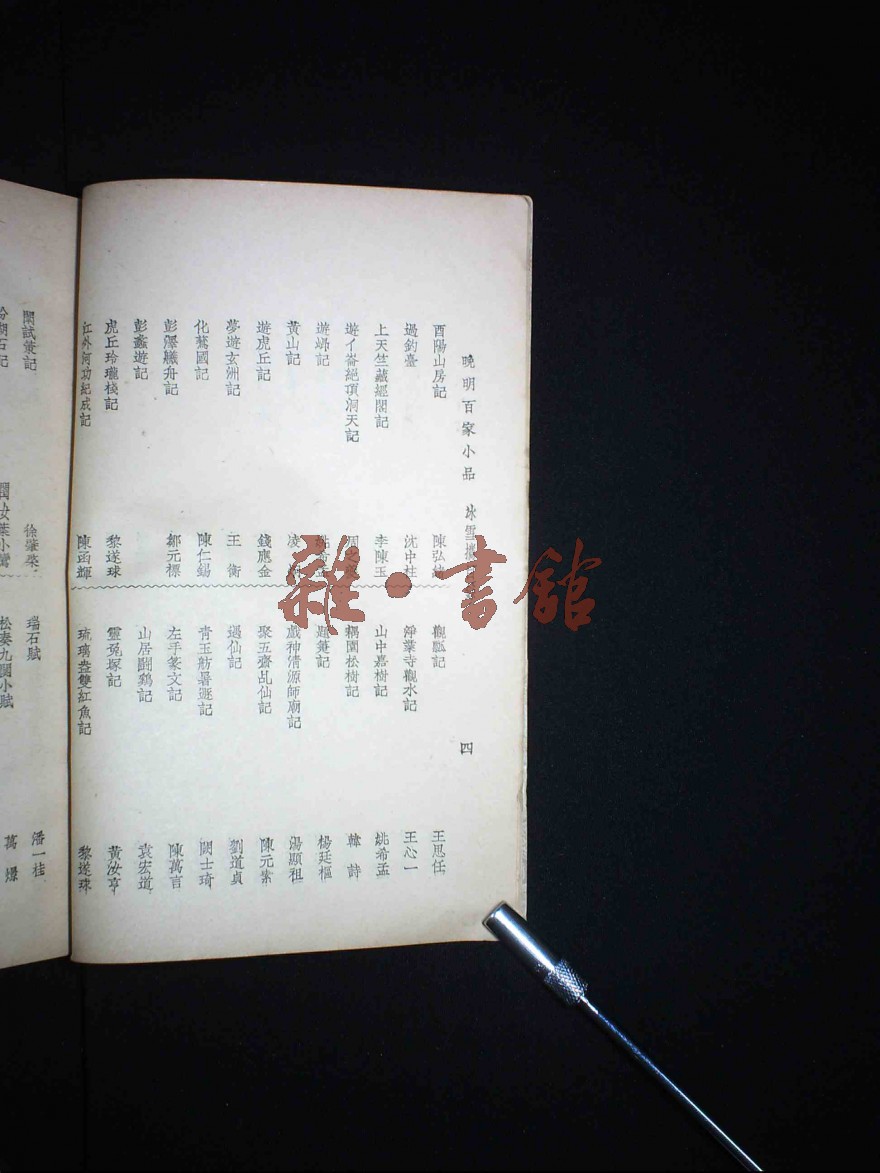 晚明百家小品 冰雪攜 四
酉陽山房記 陳弘緒
過釣臺 沈中柱
上天竺藏經閣記 李陳玉
遊亻崙絕頂洞天記
遊峁記
黃山記 凌
遊虎丘記 錢應金
夢遊玄洲記 王衡
化鶩國記 陳仁錫
彭澤艤舟記 鄒元標
彭蠡遊記
虎丘玲瓏棧記 黎遂球
江外河功紀成記 陳函輝
觀瓢記 王思任
淨業寺觀水記 王心一
山中嘉樹記 姚希孟
耦園松樹記 韓詩
題箑記 楊廷樞
戲神清源師廟記 湯顯祖
聚五齋乩仙記 陳元素
遇仙記 劉道貞
青玉舫暑遊記 闕士琦
左手篆文記 陳萬言
山居鬭鷄記 袁宏道
靈兎塚記 黃汝亨
琉璃壺雙紅魚記 黎遂球
閩試葉記 徐肇棨
汾湖石記 葉小鸞
瑞石賦 潘一桂
松奏九闋小賦 萬爆
雜·書館